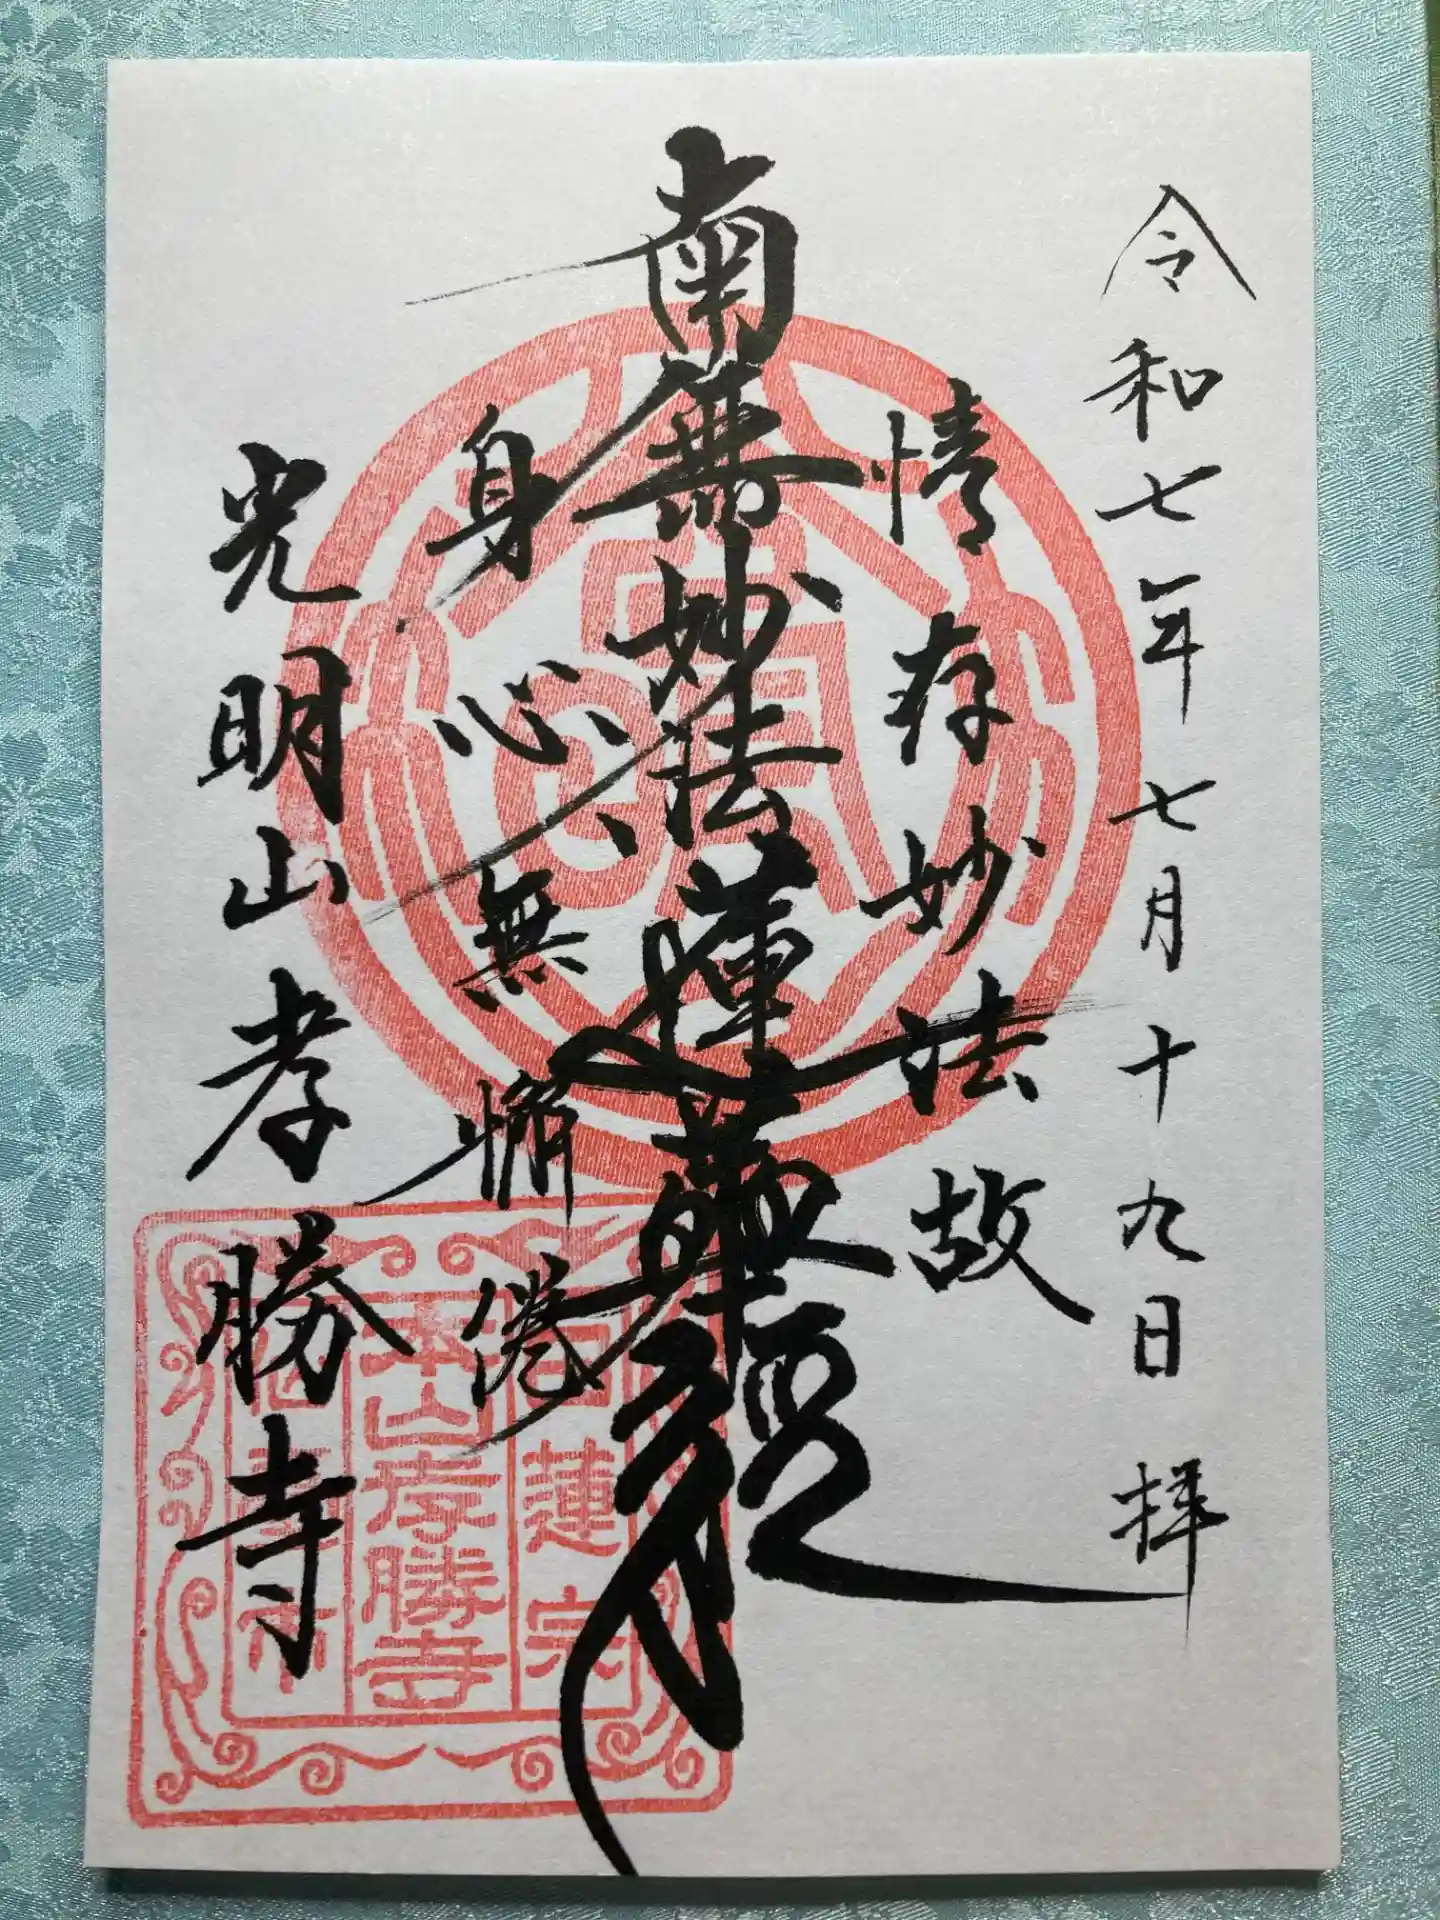 令和七年七月十九日 拝
情存妙法故
南無妙法蓮華經
身心無懈倦
光明山孝勝寺
日蓮宗
本山孝勝寺